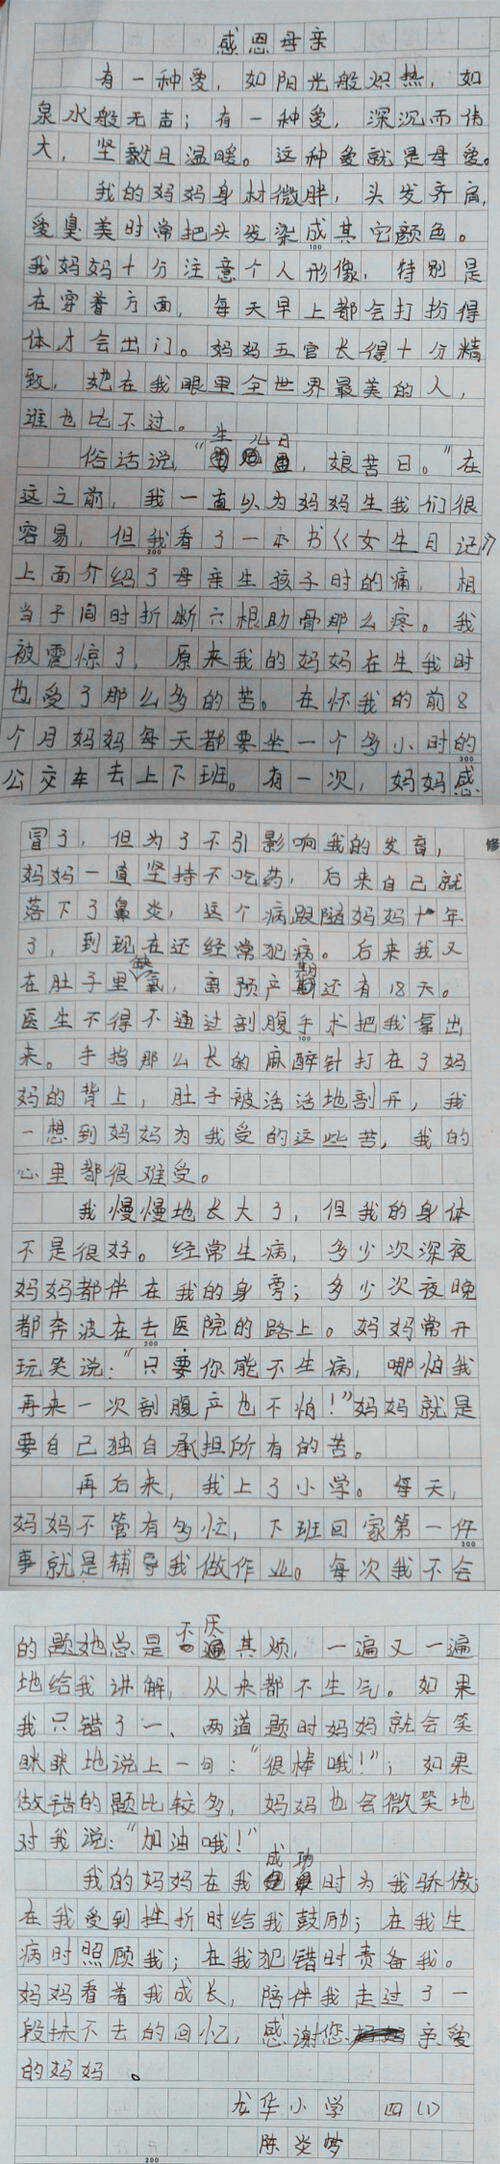 感恩母亲
有一种爱，如阳光般炽热，如
泉水般无声；有一种爱，深沉而伟
大，坚毅且温暖。这种爱就是母爱。
我的妈妈身材微胖，头发齐肩，
爱臭美时常把头发染成其它颜色。
我妈妈十分注意个人形像，特别是
在穿着方面，每天早上都会打扮得
体才会出门。妈妈五官长得十分精
致，她在我眼里全世界最美的人，
谁也比不过。
俗话说，“生儿日，娘苦日。”在
这之前，我一直以为妈妈生我们很
容易，但我看了一本书《女生日记》
上面介绍了母亲生孩子时的痛，相
当于同时折断六根助骨那么疼。我
被震惊了，原来我的妈妈在生我时
也受了那么多的苦。在怀我的前8
个月妈妈每天都要坐一个多小时的
公交车去上下班。有一次，妈妈感
冒了，但为了不引影响我的发育，
妈妈一直坚持不吃药，后来自己就
落下了鼻炎，这个病跟随妈妈十年
了，到现在还经常犯病。后来我又
在肚子里缺氧，离预产期还有18天。
医生不得不通过剖腹手术把我拿出
来。手指那么长的麻醉针打在了妈
妈的背上，肚子被活活地剖开，我
一想到妈妈为我受的这些苦，我的
心里都很难受。
我慢慢地长大了，但我的身体
不是很好。经常生病，多少次深夜
妈妈都伴在我的身旁；多少次夜晚
都奔波在去医院的路上。妈妈常开
玩笑说：“只要你能不生病，哪怕我
再来一次剖腹产也不怕！”妈妈就是
要自己独自承担所有的苦。
再后来，我上了小学。每天，
妈妈不管有多忙，下班回家第一件
事就是辅导我做作业。每次我不会
的题她总是不厌其烦，一遍又一遍
地给我讲解，从来都不生气。如果
我只错了一、两道题时妈妈就会笑
眯眯地说上一句：“很棒哦！”；如果
做错的题比较多，妈妈也会微笑地
对我说：“加油哦！”
我的妈妈在我成功时为我骄傲；
在我受到挫折时给我鼓励；在我生
病时照顾我；在我犯错时责备我。
妈妈看着我成长，陪伴我走过了一
段抹不去的回忆，感谢您亲爱
的妈妈。
龙华小学 四(1)